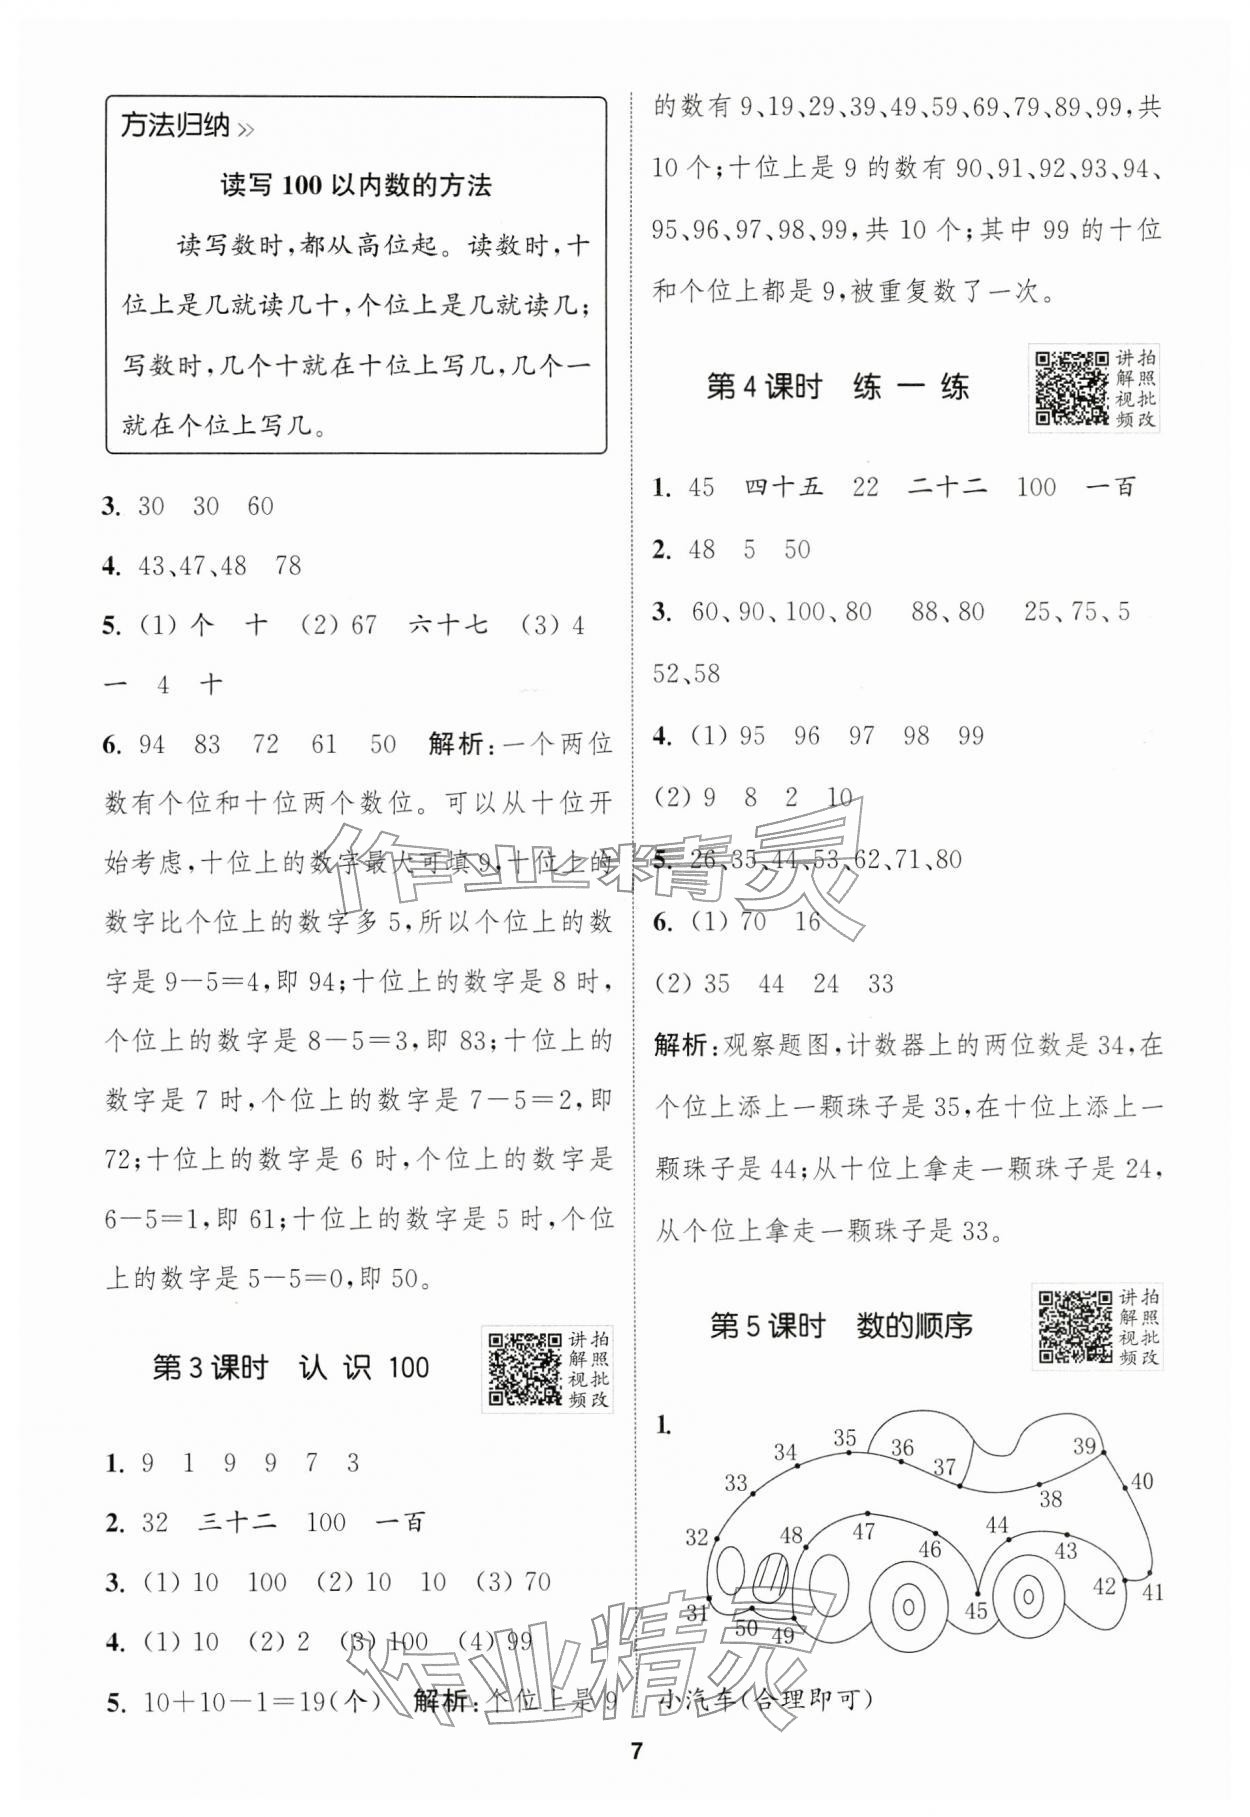 方法归纳»
读写 100 以内数的方法
读写数时,都从高位起。读数时,十
位上是几就读几十,个位上是几就读几;
写数时,几个十就在十位上写几,几个一
就在个位上写几。
3. 30 30 60
4. 43、47、48 78
5. (1)个 十 (2)67 六十七 (3)4
一 4 十
6. 94 83 72 61 50 解析:一个两位
数有个位和十位两个数位。可以从十位开
始考虑,十位上的数字最大可填9,十位上的
数字比个位上的数字多5,所以个位上的数
字是9-5=4,即94;十位上的数字是8时,
个位上的数字是8-5=3,即83;十位上的
数字是7时,个位上的数字是7-5=2,即
72;十位上的数字是6时,个位上的数字是
6-5=1,即61;十位上的数字是5时,个位
上的数字是5-5=0,即50。
第3课时 认识100
讲拍
解照
视批
频改
1. 9 1 9 9 7 3
2. 32 三十二 100 一百
3. (1)10 100 (2)10 10 (3)70
4. (1)10 (2)2 (3)100 (4)99
5. 10+10-1=19(个) 解析:个位上是9
的数有9、19、29、39、49、59、69、79、89、99,共
10个;十位上是9的数有90、91、92、93、94、
95、96、97、98、99,共10个;其中99的十位
和个位上都是9,被重复数了一次。
第4课时 练一练
讲拍
解照
视批
频改
1. 45 四十五 22 二十二 100 一百
2. 48 5 50
3. 60、90、100、80 88、80 25、75、5
52、58
4. (1)95 96 97 98 99
(2)9 8 2 10
5. 26、35、44、53、62、71、80
6. (1)70 16
(2)35 44 24 33
解析:观察题图,计数器上的两位数是34,在
个位上添上一颗珠子是35,在十位上添上一
颗珠子是44;从十位上拿走一颗珠子是24,
从个位上拿走一颗珠子是33。
第5课时 数的顺序
讲拍
解照
视批
频改
1.
31
32
33
34
35
36
37
38
39
40
41
42
43
44
45
46
47
48
49
50
小汽车(合理即可)
7
作业精灵
作业精灵